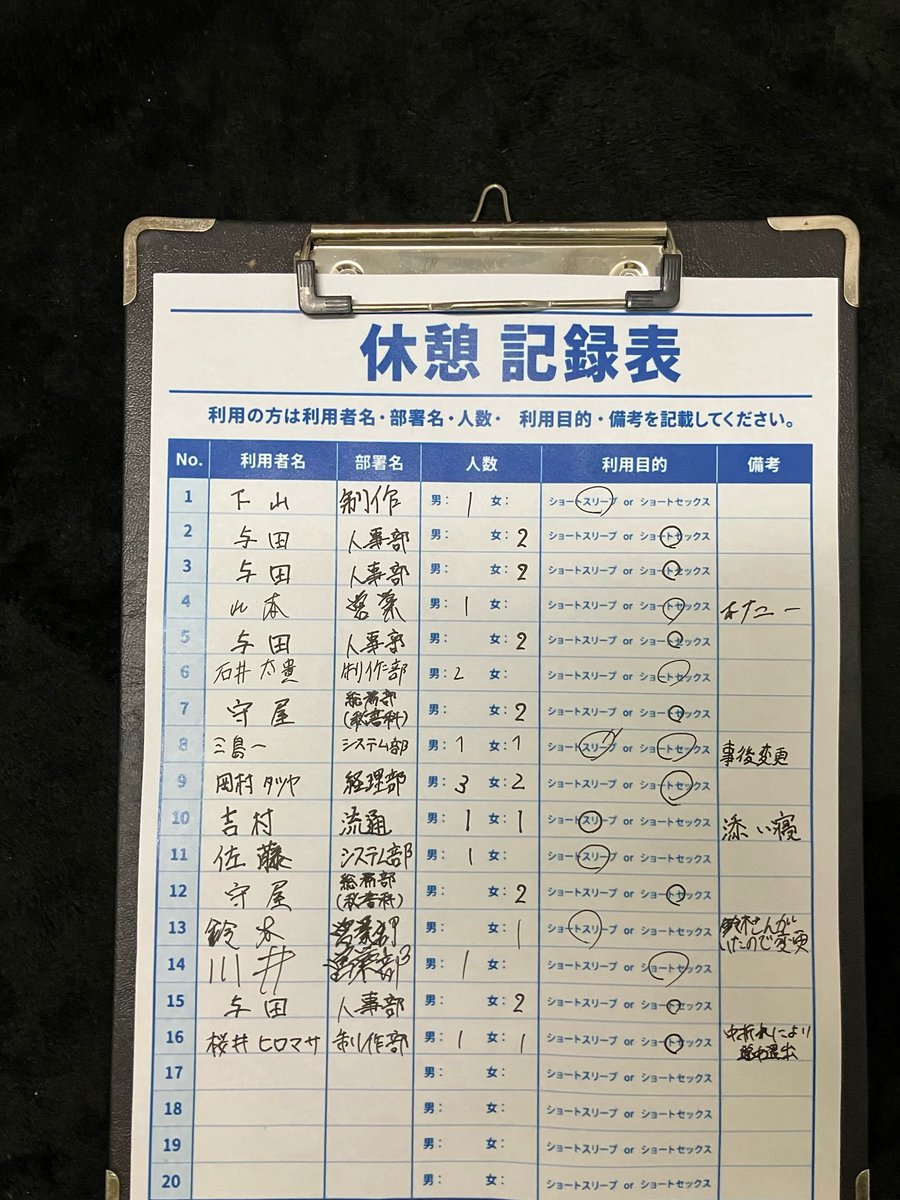 休憩 記録表
利用の方は利用者名・部署名・人数・ 利用目的・備考を記載してください。
No. 利用者名 部署名 人数 利用目的 備考
1 下山 制作 男: 1 女: ショートスリープ or ショートセックス
2 与田 人事部 男: 女: 2 ショートスリープ or ショートセックス
3 与田 人事部 男: 女: 2 ショートスリープ or ショートセックス
4 山本 営業 男: 1 女: ショートスリープ or ショートセックス オナニー
5 与田 人事部 男: 女: 2 ショートスリープ or ショートセックス
6 石井大貴 制作部 男: 2 女: ショートスリープ or ショートセックス
7 守屋 総務部(秘書科) 男: 女: 2 ショートスリープ or ショートセックス
8 三島一 システム部 男: 1 女: 1 ショートスリープ or ショートセックス 事後変更
9 岡村タツヤ 経理部 男: 3 女: 2 ショートスリープ or ショートセックス
10 吉村 流通 男: 1 女: 1 ショートスリープ or ショートセックス 添い寝
11 佐藤 システム部 男: 1 女: ショートスリープ or ショートセックス
12 守屋 総務部(秘書科) 男: 女: 2 ショートスリープ or ショートセックス
13 鈴木 男: 女: 1 ショートスリープ or ショートセックス
14 川井 営業部 男: 1 女: ショートスリープ or ショートセックス 鈴木さんがいたので変更
15 与田 人事部 男: 女: 2 ショートスリープ or ショートセックス
16 桜井ヒロマサ 制作部 男: 1 女: 1 ショートスリープ or ショートセックス 中折れにより途中退出
17 男: 女: ショートスリープ or ショートセックス
18 男: 女: ショートスリープ or ショートセックス
19 男: 女: ショートスリープ or ショートセックス
20 男: 女: ショートスリープ or ショートセックス